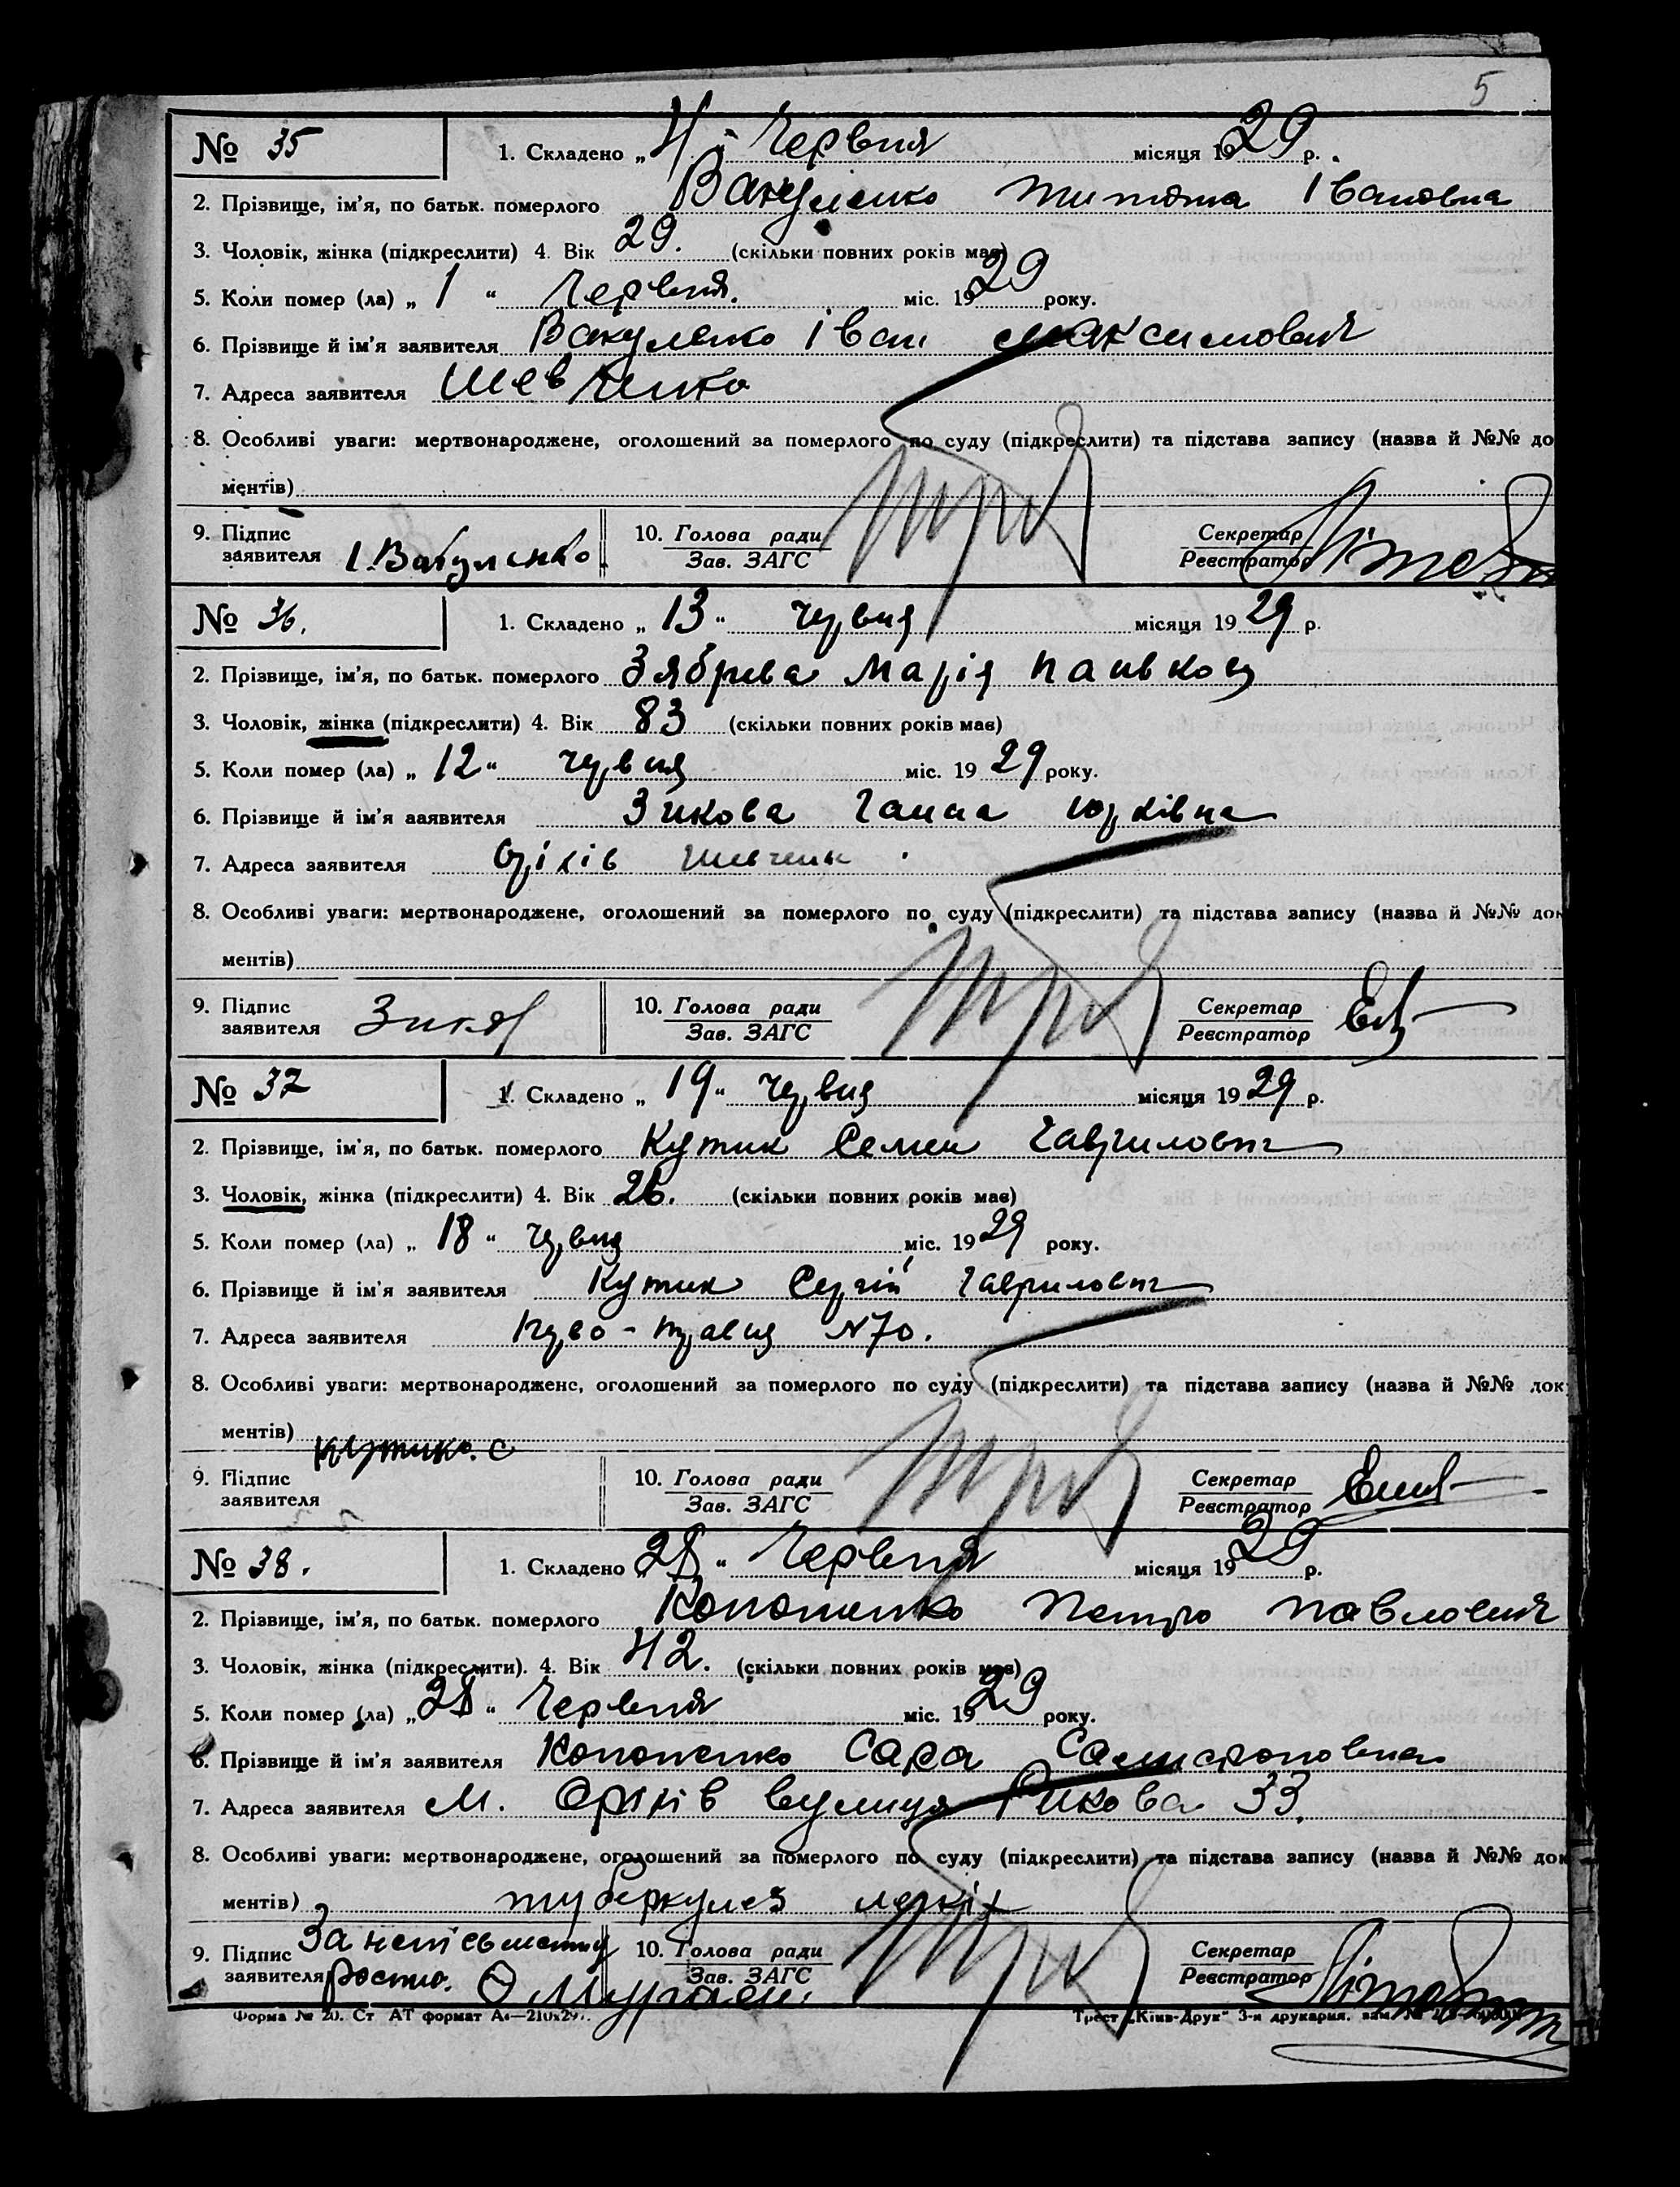 5
№ 35 1. Складено „4“ Червня місяця 1929 р.
2. Прізвище, ім'я, по батьк. померлого Вакуленко Титяна Івановна
3. Чоловік, жінка (підкреслити) 4. Вік 29. (скільки повних років має)
5. Коли помер (ла) „1“ Червня. міс. 1929 року.
6. Прізвище й ім'я заявителя Вакуленко Іван Максимович
7. Адреса заявителя Шевченко
8. Особливі уваги: мертвонароджене, оголошений за померлого по суду (підкреслити) та підстава запису (назва й №№ до
ментів)
9. Підпис заявителя І. Вакуленко 10. Голова ради Секретар
Зав. ЗАГС Реєстратор
№ 36. 1. Складено „13“ червня місяця 1929 р.
2. Прізвище, ім'я, по батьк. померлого Зябрева Марія
3. Чоловік, жінка (підкреслити) 4. Вік 83 (скільки повних років має)
5. Коли помер (ла) „12“ червня міс. 1929 року.
6. Прізвище й ім'я ааявителя Зикова Ганна Юрківна
7. Адреса заявителя Оріхів Шевченк
8. Особливі уваги: мертвонароджене, оголошений за померлого по суду (підкреслити) та підстава запису (назва й №№ док
ментів)
9. Підпис заявителя 10. Голова ради Секретар
Зав. ЗАГС Реєстратор
№ 37 1. Складено „19“ червня місяця 1929 р.
2. Прізвище, ім'я, по батьк. померлого Кутик Семен Гаврилович
3. Чоловік, жінка (підкреслити) 4. Вік 26. (скільки повних років має)
5. Коли помер (ла) „18“ червня міс. 1929 року.
6. Прізвище й ім'я заявителя Кутик Сергій Гаврилович
7. Адреса заявителя Перво-травня N 70.
8. Особливі уваги: мертвонароджене, оголошений за померлого по суду (підкреслити) та підстава запису (назва й №№ док
ментів)
9. Підпис заявителя Кутико. С 10. Голова ради Секретар
Зав. ЗАГС Реєстратор
№ 38. 1. Складено „28“ Червня місяця 1929 р.
2. Прізвище, ім'я, по батьк. померлого Кононенко Петро Павлович
3. Чоловік, жінка (підкреслити). 4. Вік 42. (скільки повних років має)
5. Коли помер (ла) „28“ Червня міс. 1929 року.
6. Прізвище й ім'я заявителя Кононенко Сара
7. Адреса заявителя м. Оріхів вулиця Рикова 33.
8. Особливі уваги: мертвонароджене, оголошений за померлого по суду (підкреслити) та підстава запису (назва й №№ док
ментів) туберкулез легкіх
9. Підпис заявителя За неписьменну 10. Голова ради Секретар
Зав. ЗАГС Реєстратор
Форма № 20. Ст АТ формат А4—210х297. Трест „Київ-Друк“ 3-я друкарня. зам. №